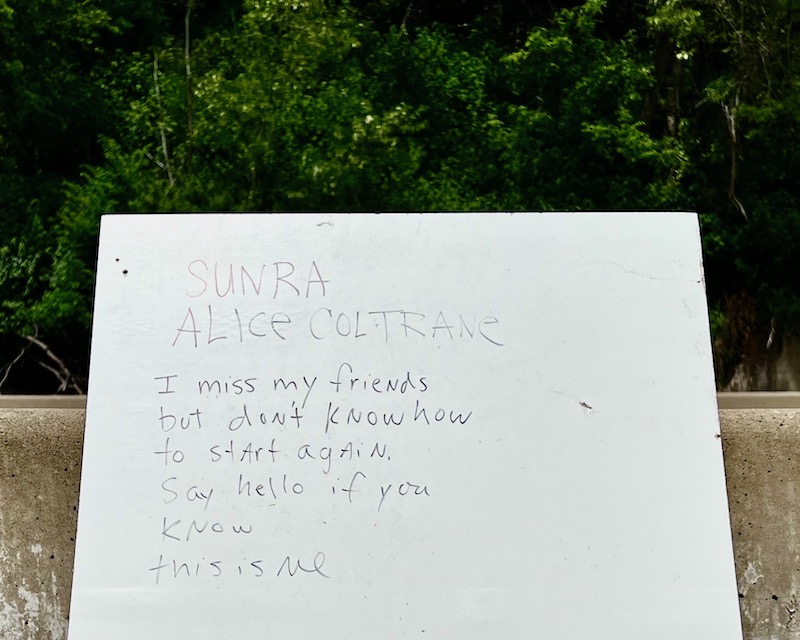 SUNRA
ALICe COLTRANe
I miss my friends
but don't know how
to stArt agAiN.
Say hello if you
KNow
this is Me